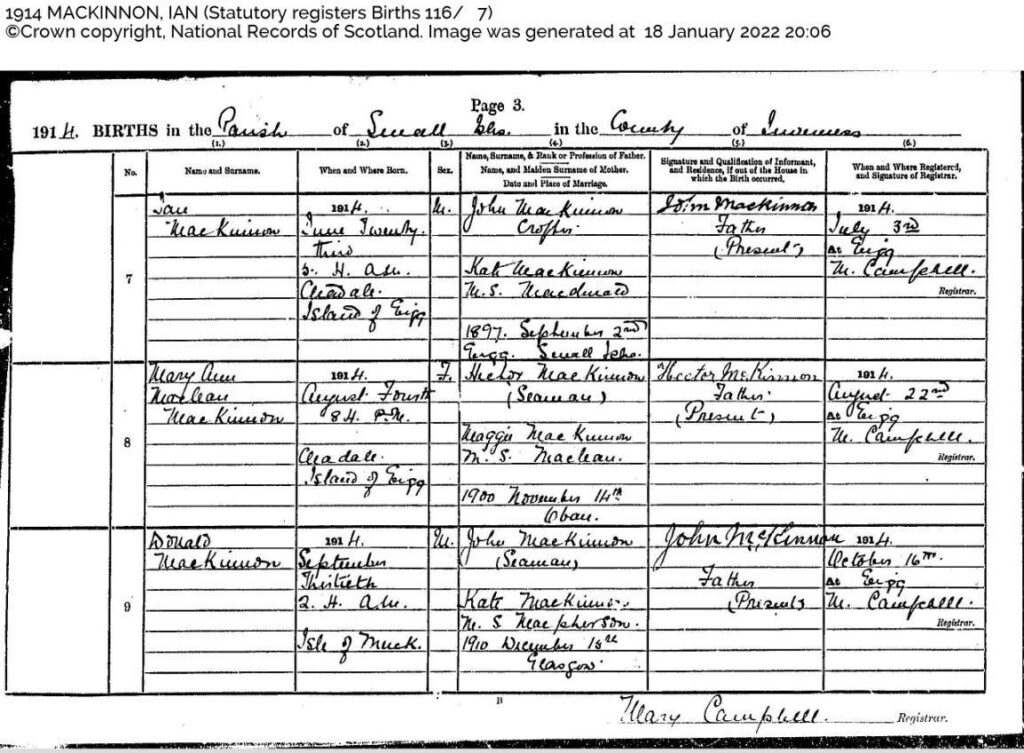 1914 MACKINNON, IAN (Statutory registers Births 116/ 7)
©Crown copyright, National Records of Scotland. Image was generated at 18 January 2022 20:06
Page 3.
1914. BIRTHS in the Parish of Small Isles. in the County of Inverness
(1.) (2.) (3.) (4.) (5.) (6.)
No. Name and Surname. When and Where Born. Sex. Name, Surname, & Rank or Profession of Father. Name, and Maiden Surname of Mother. Date and Place of Marriage. Signature and Qualification of Informant, and Residence, if out of the House in which the Birth occurred. When and Where Registered, and Signature of Registrar.
7
Ian
MacKinnon
1914.
June Twenty.
third
5. H. A.M.
Cleadale.
Island of Eigg
M.
John MacKinnon
Crofter.
Kate MacKinnon
M.S. Macdonald
1897. September 2nd
Eigg. Small Isles.
John Mackinnon
Father
(Present)
1914.
July 3rd
At Eigg
M. Campbell.
Registrar.
8
Mary Ann
Maclean
MacKinnon
1914.
August Fourth
8 H. P.M.
Cleadale.
Island of Eigg
F.
Hector MacKinnon
(Seaman)
Maggie MacKinnon
M. S. Maclean.
1900 November 14th
Oban.
Hector McKinnon
Father.
(Present)
1914.
August 22nd
At Eigg
M. Campbell.
Registrar.
9
Donald
MacKinnon
1914.
September
Thirtieth
2. H. A.M.
Isle of Muck.
M.
John MacKinnon
(Seaman)
Kate MacKinnon
M. S Macpherson.
1910 December
Glasgow.
John McKinnon
Father
(Present)
1914.
October 16th.
At Eigg
M. Campbell.
Registrar.
B
Mary Campbell. Registrar.